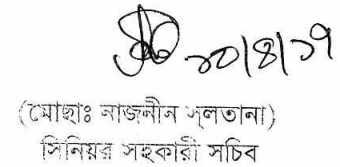 ২০/৪/১৭
(মোছাঃ নাজনীন সুলতানা)
সিনিয়র সহকারী সচিব